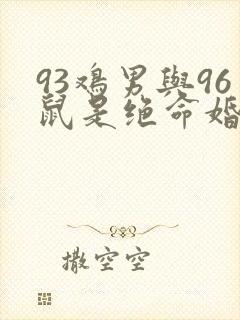 93鸡男與96
鼠是绝命婚
撒空空